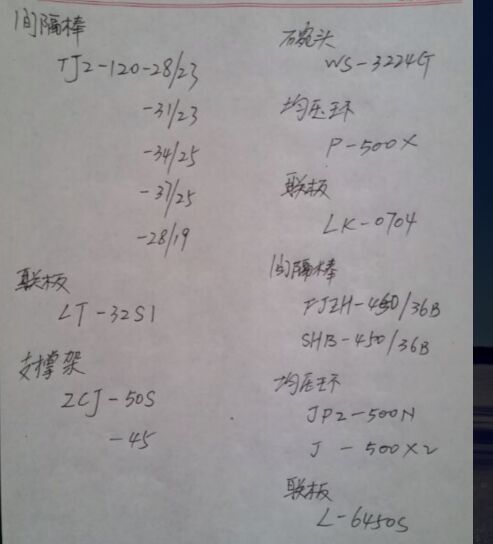 间隔棒
TJ2-120-28/23
-31/23
-34/25
-37/25
-28/19
联板
LT-32S1
支撑架
ZCJ-50S
-45
碗头
WS-3224G
均压环
P-500X
联板
LK-0704
间隔棒
FJZH-450/36B
SHB-450/36B
均压环
JP2-500N
J-500X2
联板
L-6450S